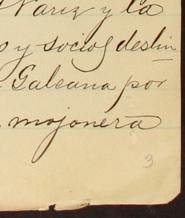 Nariz y la
o y social deslin
Galeana por
mojonera
3